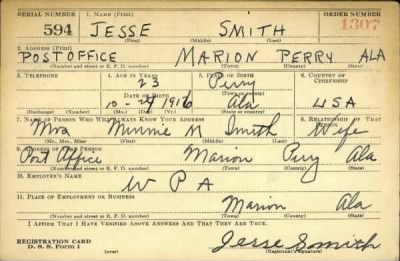 SERIAL NUMBER 1. NAME (Print) ORDER NUMBER
594 JESSE SMITH 1307
(First) (Middle) (Last)
2. ADDRESS (Print)
POST OFFICE MARION PERRY ALA
(Number and street or R. F. D. number) (Town) (County) (State)
3. TELEPHONE 4. AGE IN YEARS 5. PLACE OF BIRTH 6. COUNTRY OF CITIZENSHIP
23 Perry
DATE OF BIRTH (Town or county)
10-24 1916 Ala USA
(Exchange) (Number) (Mo.) (Day) (Yr.) (State or country)
7. NAME OF PERSON WHO WILL ALWAYS KNOW YOUR ADDRESS 8. RELATIONSHIP OF THAT PERSON
Mrs Minnie M Smith Wife
(Mr., Mrs., Miss) (First) (Middle) (Last)
9. ADDRESS OF THAT PERSON
Post Office Marion Perry Ala
(Number and street or R. F. D. number) (Town) (County) (State)
10. EMPLOYER'S NAME
W P A
11. PLACE OF EMPLOYMENT OR BUSINESS
Marion Ala
(Number and street or R. F. D. number) (Town) (County) (State)
I AFFIRM THAT I HAVE VERIFIED ABOVE ANSWERS AND THAT THEY ARE TRUE.
REGISTRATION CARD
D. S. S. Form 1 (over) Jesse Smith
(Registrant's signature)